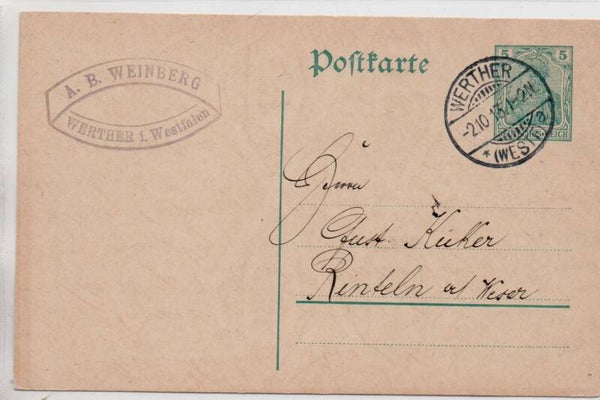 A. B. WEINBERG
WERTHER i. Westfalen
Postkarte
5 5
REICH
WERTHER
-2.10.13.1-2N.
* (WESTF.) a
Herrn
Gust. Küker
Rinteln a/ Weser